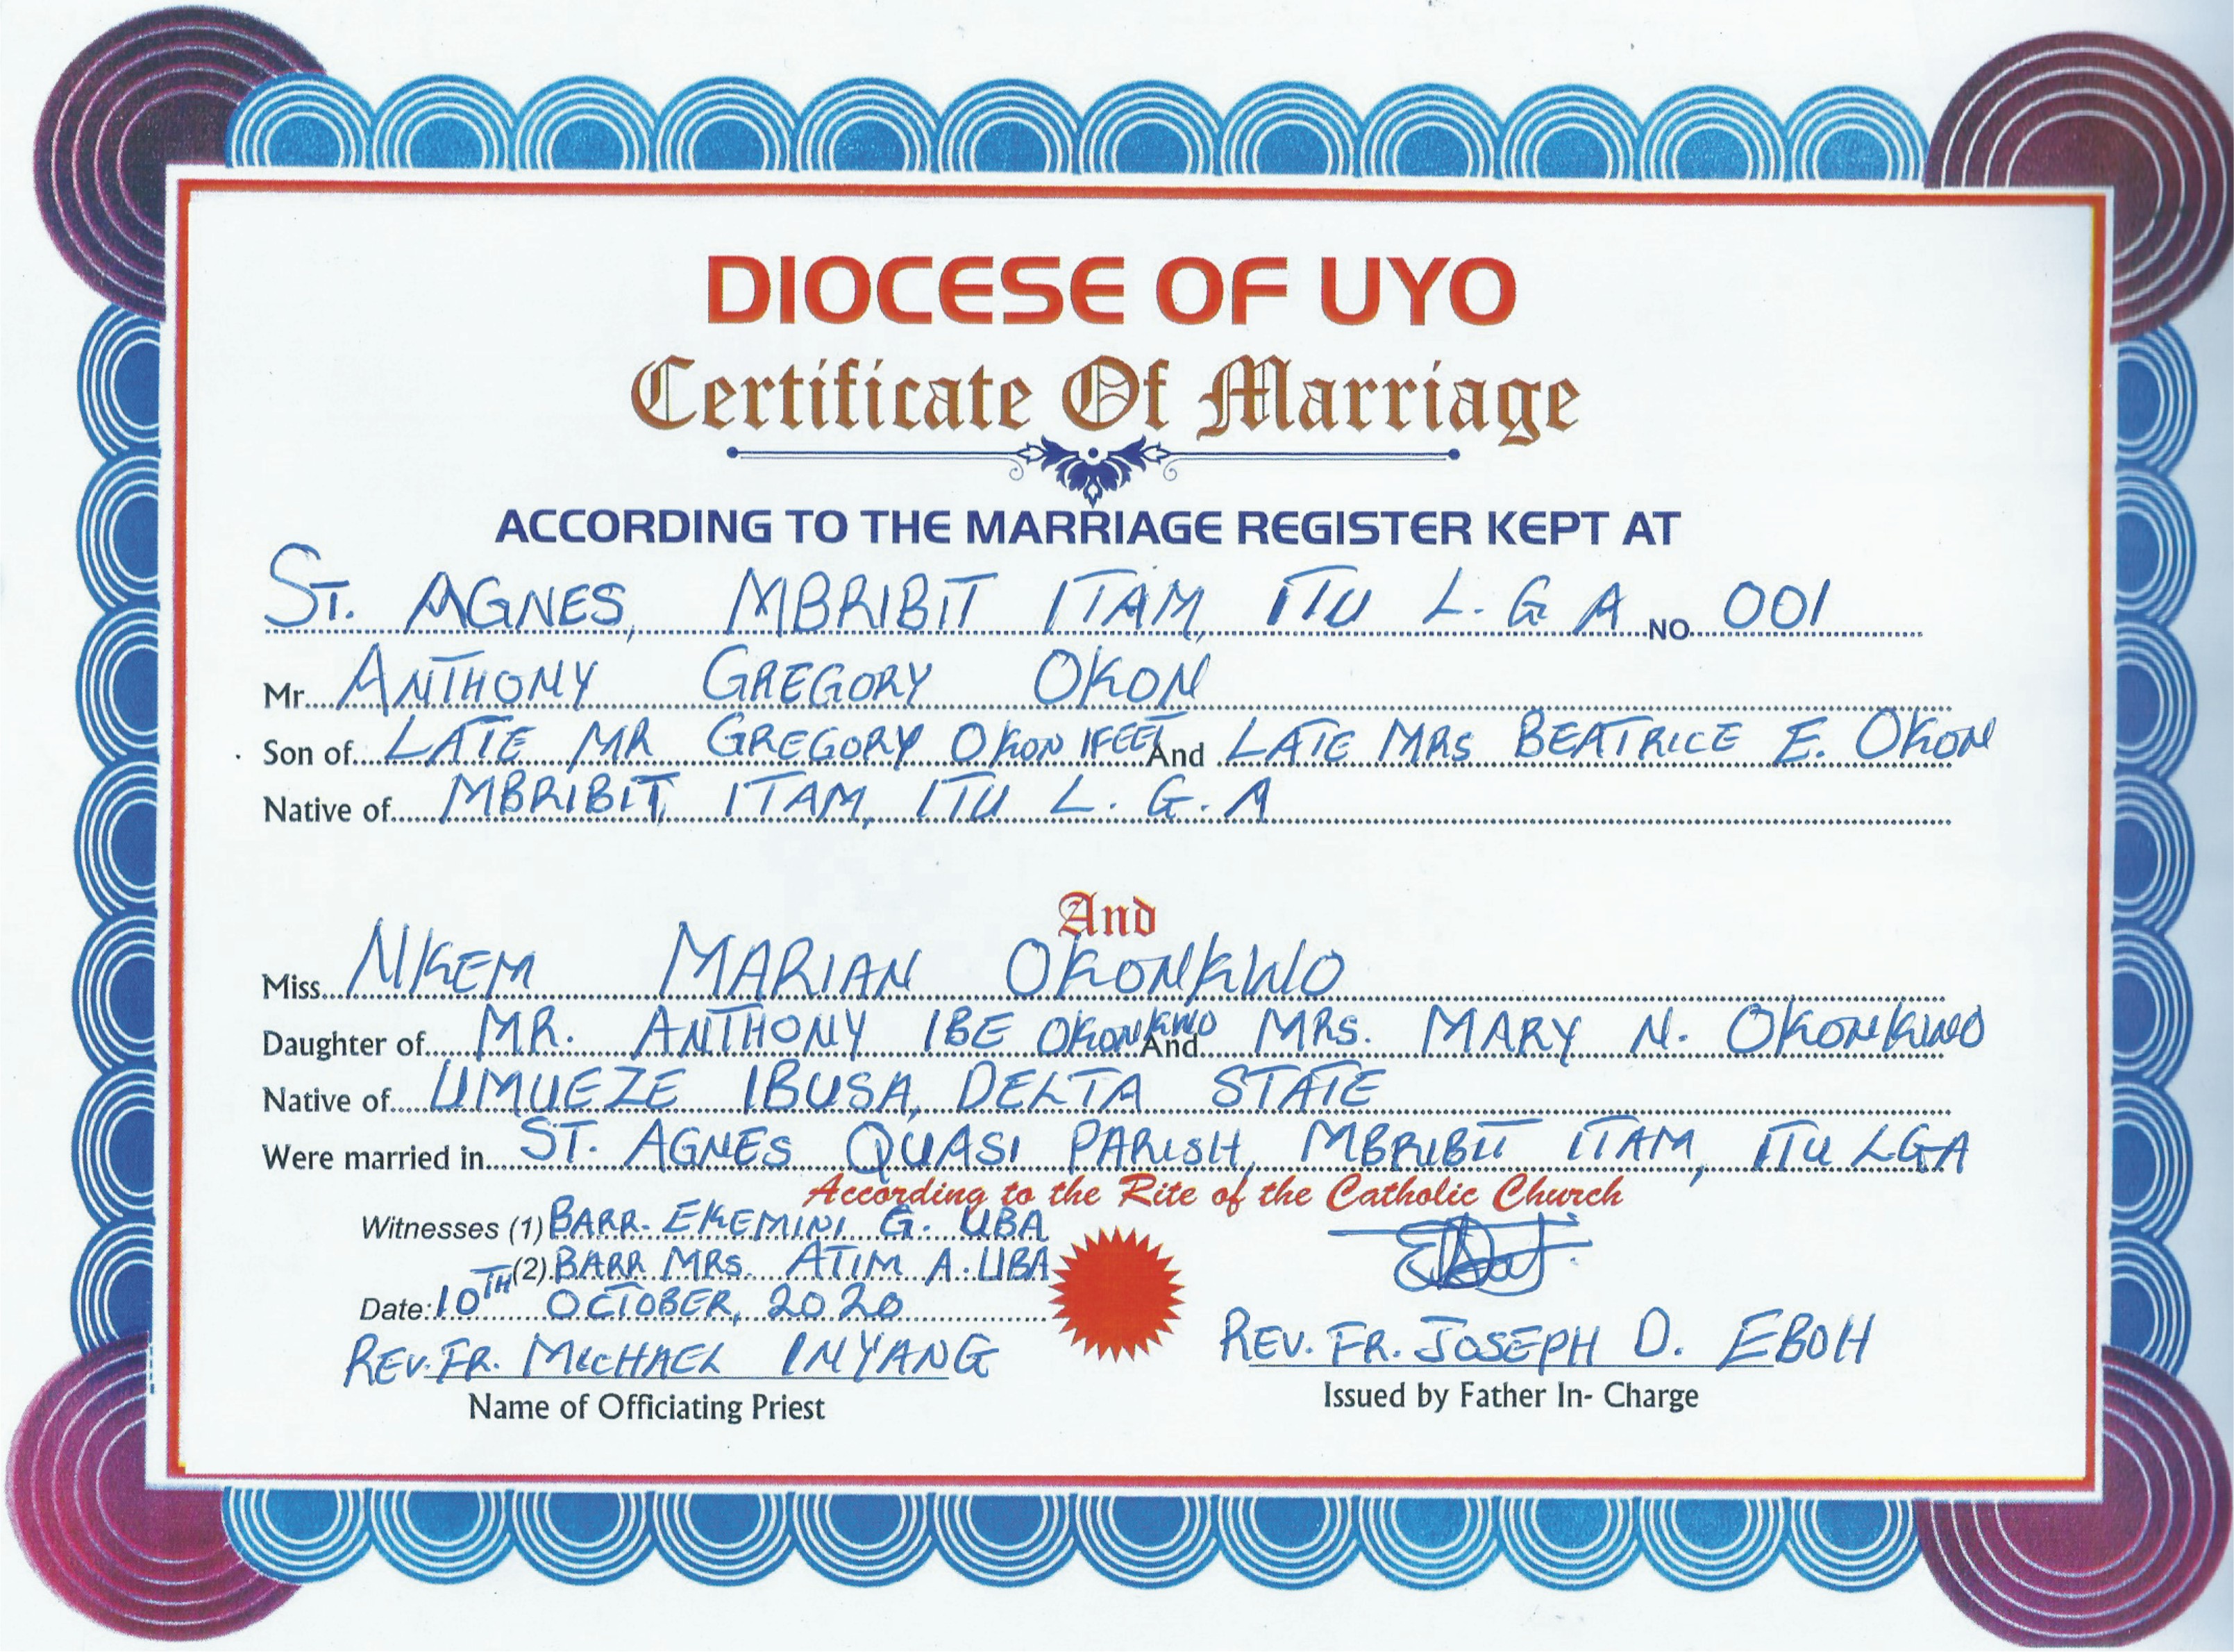 DIOCESE OF UYO
Certificate Of Marriage
ACCORDING TO THE MARRIAGE REGISTER KEPT AT
ST. AGNES, MBRIBIT ITAM, ITU L. G A NO. 001
Mr. ANTHONY GREGORY OKON
Son of LATE MR GREGORY OKON IFEET And LATE MRS BEATRICE E. OKON
Native of MBRIBIT, ITAM, ITU L. G. A
And
Miss NKEM MARIAN OKONKWO
Daughter of MR. ANTHONY IBE OKONKWO And MRS. MARY N. OKONKWO
Native of UMUEZE IBUSA, DELTA STATE
Were married in ST. AGNES QUASI PARISH, MBRIBIT ITAM, ITU LGA
According to the Rite of the Catholic Church
Witnesses (1) BARR. EKEMINI G. UBA
(2) BARR MRS. ATIM A. UBA
Date: 10TH OCTOBER, 2020
REV. FR. MICHAEL INYANG REV. FR. JOSEPH D. EBOH
Name of Officiating Priest Issued by Father In- Charge